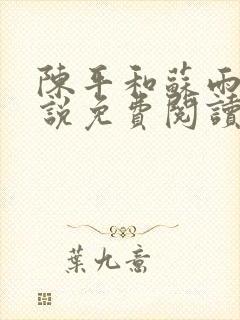 陳平和蘇雨
說免費閱讀
葉九意